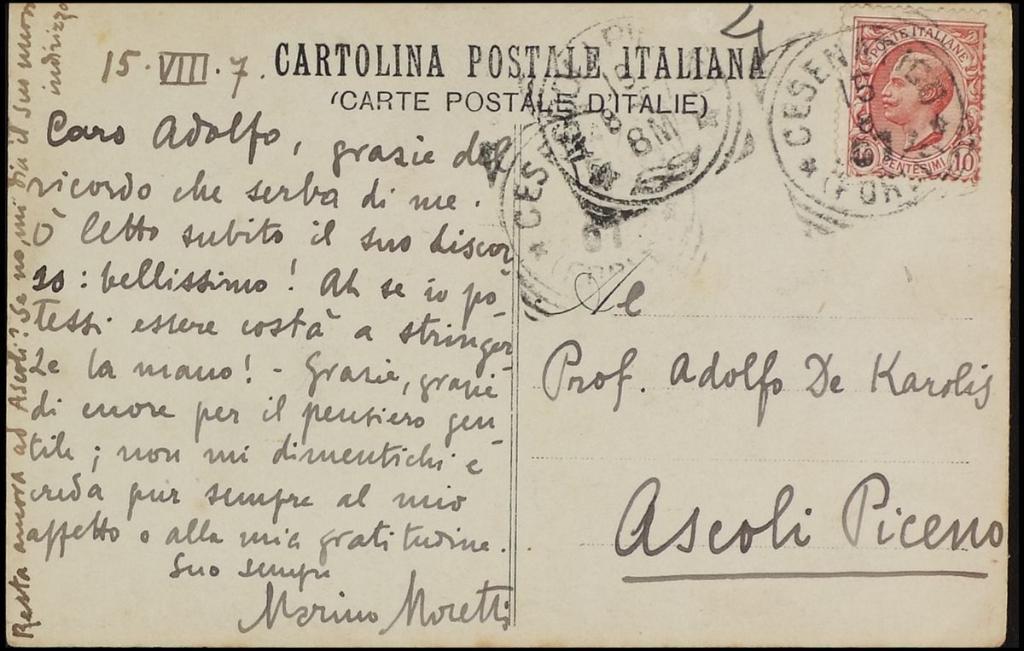 15·VIII·7.
CARTOLINA POSTALE ITALIANA
(CARTE POSTALE D'ITALIE)
Caro Adolfo, grazie del
ricordo che serba di me.
Ò letto subito il suo discor
so: bellissimo! Ah se io po
tessi essere costà a stringer
Le la mano! - Grazie, grazie
di cuore per il pensiero gen
tile; non mi dimentichi e
creda pur sempre al mio
affetto e alla mia gratitudine.
Suo sempre
Marino Moretti
Resta ancora ad Ascoli? Se no, mi dia il suo nuovo
indirizzo
POSTE ITALIANE
CENTESIMI 10
CESENATICO
(FORLI
8M
CES
07
Al
Prof. Adolfo De Karolis
Ascoli Piceno